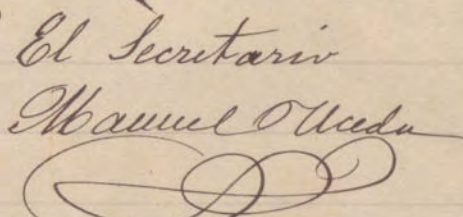 El Secretario
Manuel Uceda